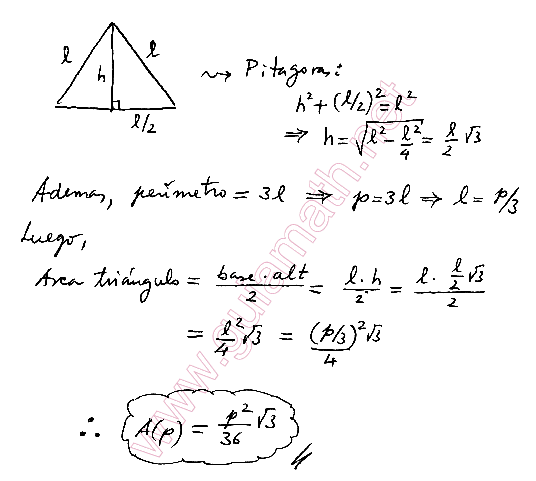 l l
h
l/2
⇝ Pitagoras:
h² + (l/2)² = l²
⇒ h = √(l² − l²/4) = l/2 √3
Ademas, perímetro = 3l ⇒ p = 3l ⇒ l = p/3
Luego,
Area triángulo = base · alt / 2 = l · h / 2 = l · l/2 √3 / 2
= l²/4 √3 = (p/3)² √3 / 4
∴ A(p) = p²/36 √3
www.guiamath.net